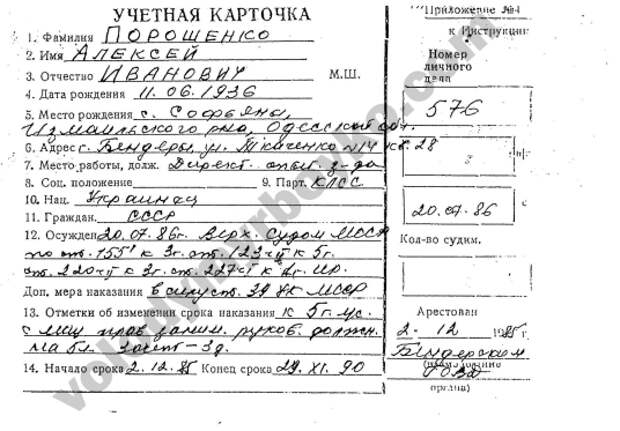 УЧЕТНАЯ КАРТОЧКА
1. Фамилия ПОРОШЕНКО
2. Имя АЛЕКСЕЙ
3. Отчество ИВАНОВИЧ М.Ш.
4. Дата рождения 11.06.1936
5. Место рождения с. Софьяны,
Измаильского р-на, Одесской обл.
6. Адрес г. Бендеры, ул. Ткаченко №14 кв. 28
7. Место работы, долж. Директ. опыт. з-да
8. Соц. положение 9. Парт. КПСС
10. Нац. Украинец
11. Граждан. СССР
12. Осужден 20.07.86г. Верх. Судом МССР
по ст. 155' к 3г. ст. 123 чII к 5г.
ст. 220 чII к 3г. ст. 227 чI к
Доп. мера наказания в силу ст. 39 УК МССР
13. Отметки об изменении срока наказания к 5г. ус.
с лиш. прав заним. руков. должн.
14. Начало срока 2.12.85 Конец срока 29.XI.90
Приложение №4
к Инструкции
Номер
личного
дела
576
20.07.86
Кол-во судим.
Арестован
2. 12 1985г
Бендерским
ГОВД
органа)
volodymyrboyko.com